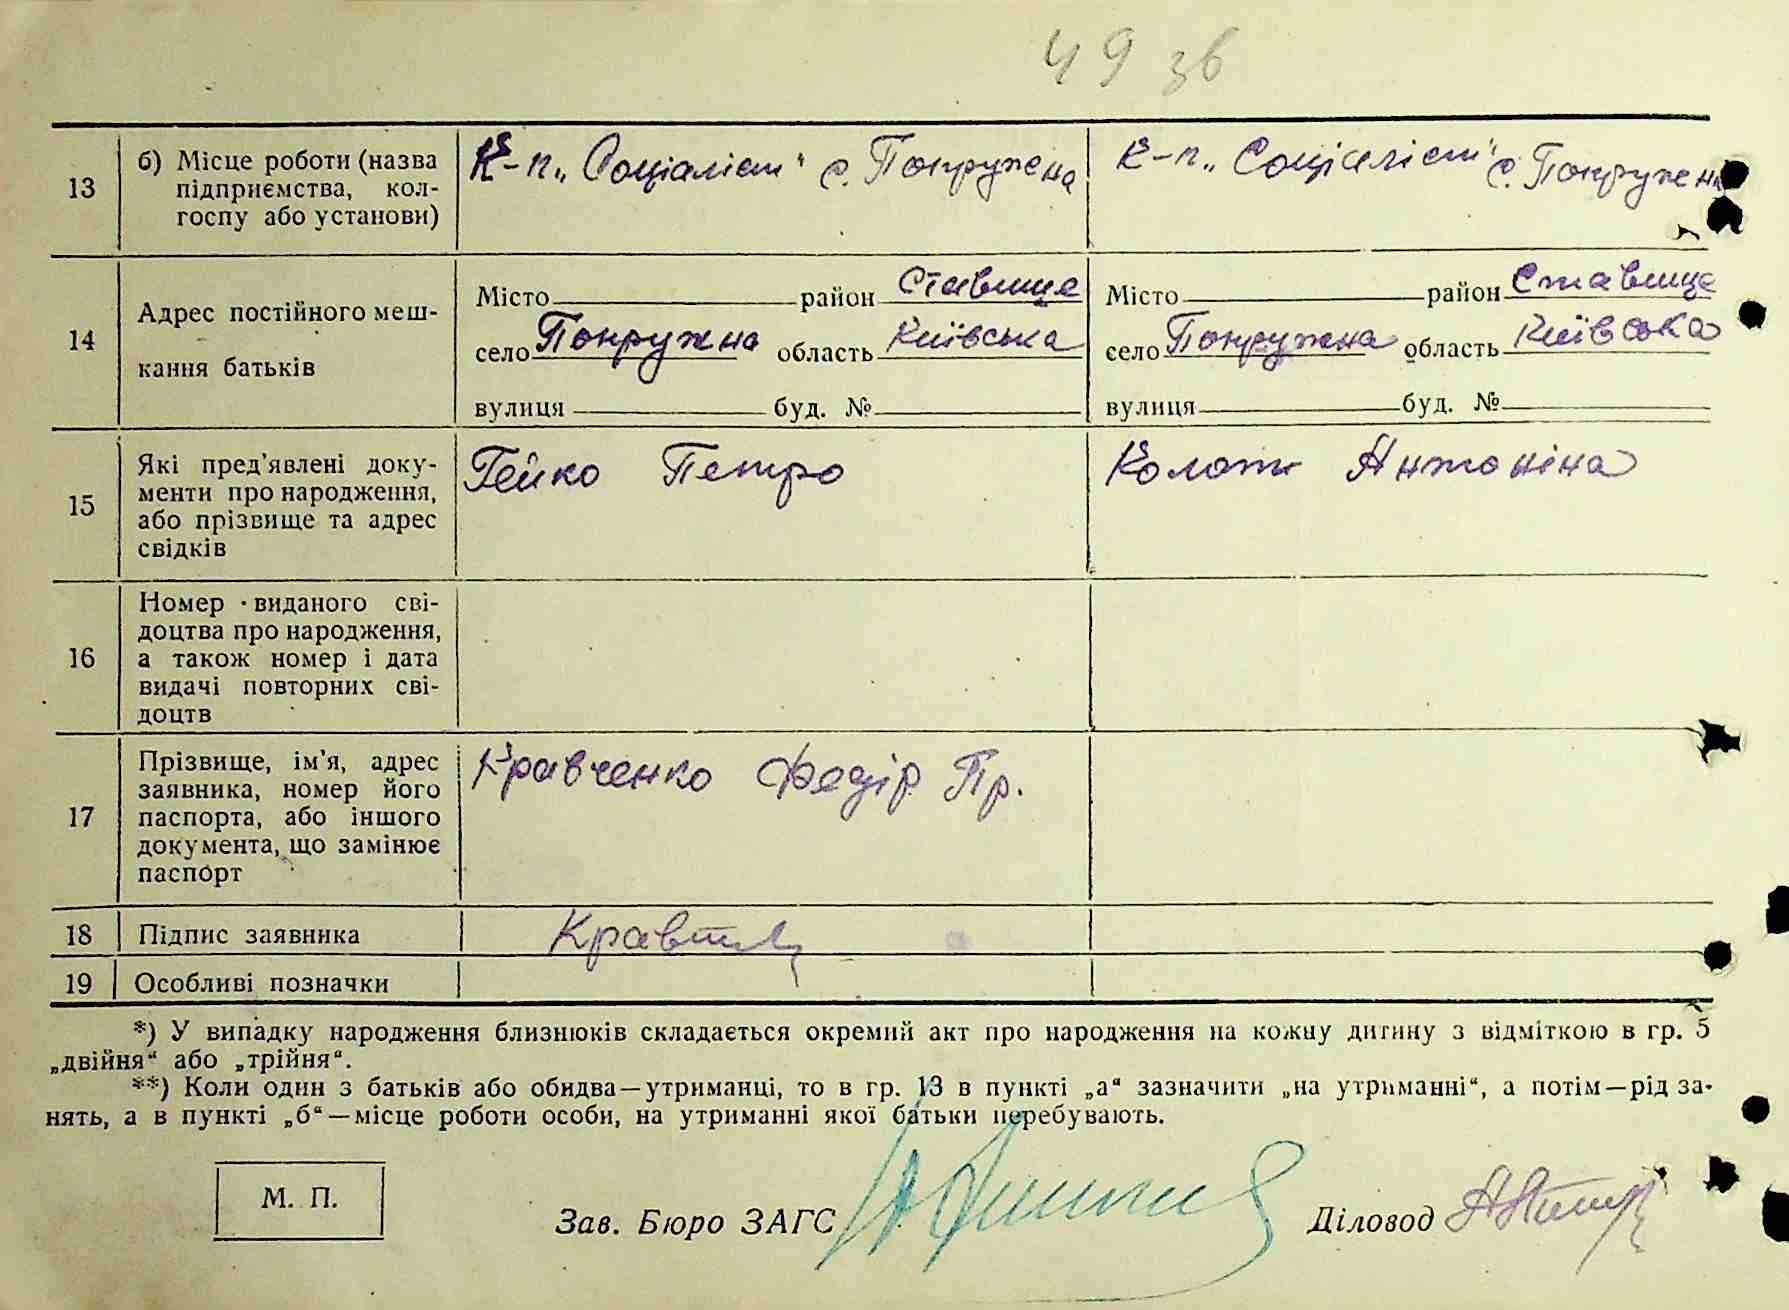 49 зв
13
б) Місце роботи (назва
підприємства, кол-
госпу або установи)
К-п „Соціаліст“ с. Попружена
К-п „Соціаліст“ с. Попружена
14
Адрес постійного меш-
кання батьків
Місто район Ставище
село Попружна область Київська
вулиця буд. №
Місто район Ставище
село Попружна область Київська
вулиця буд. №
15
Які пред’явлені доку-
менти про народження,
або прізвище та адрес
свідків
Гейко Петро
Антоніна
16
Номер виданого сві-
доцтва про народження,
а також номер і дата
видачі повторних сві-
доцтв
17
Прізвище, ім’я, адрес
заявника, номер його
паспорта, або іншого
документа, що замінює
паспорт
Кравченко Федір Пр.
18
Підпис заявника
19
Особливі позначки
*) У випадку народження близнюків складається окремий акт про народження на кожну дитину з відміткою в гр. 5
„двійня“ або „трійня“.
**) Коли один з батьків або обидва—утриманці, то в гр. 13 в пункті „а“ зазначити „на утриманні“, а потім—рід за-
нять, а в пункті „б“—місце роботи особи, на утриманні якої батьки перебувають.
М. П.
Зав. Бюро ЗАГС
Діловод